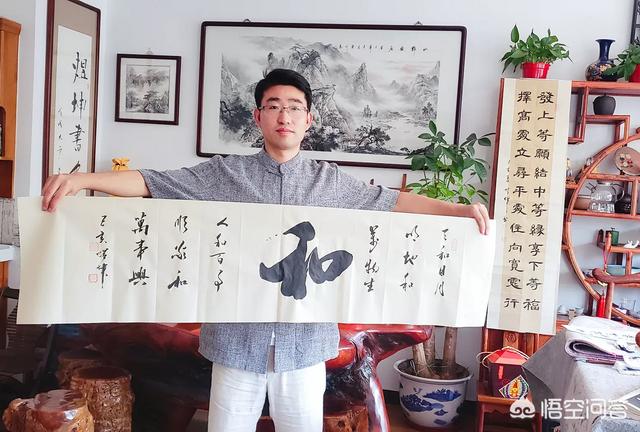 天和日月
明地和
萬物生
和
人和百事
順家和
萬事興
己亥
發上等願結中等緣享下等福
擇高處立尋平處住向寬處行
煜坤書
悟空问答